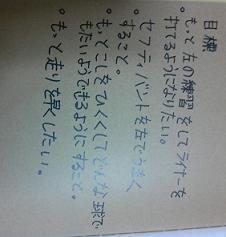 目標
。もっと左の練習をしてライナーを
打てるようになりたい。
。セフティバントを左でうまく
すること。
。もっとこしをひくくしてどんな球で
もたいようできるようにすること。
。もっと走りを早くしたい。